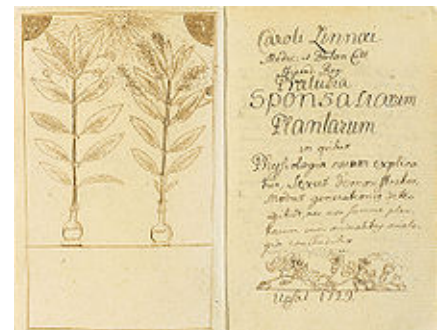 Caroli Linnæi
Medic. et Botan Cult
Præludia
Sponsaliorum
Plantarum
in quibus
Physiologia earum explica
tur, Sexus demonstratur,
Modus generationis dete
gitur, nec non summa plan
tarum cum animalibus analo
gia concluditur
Upsal 1729.